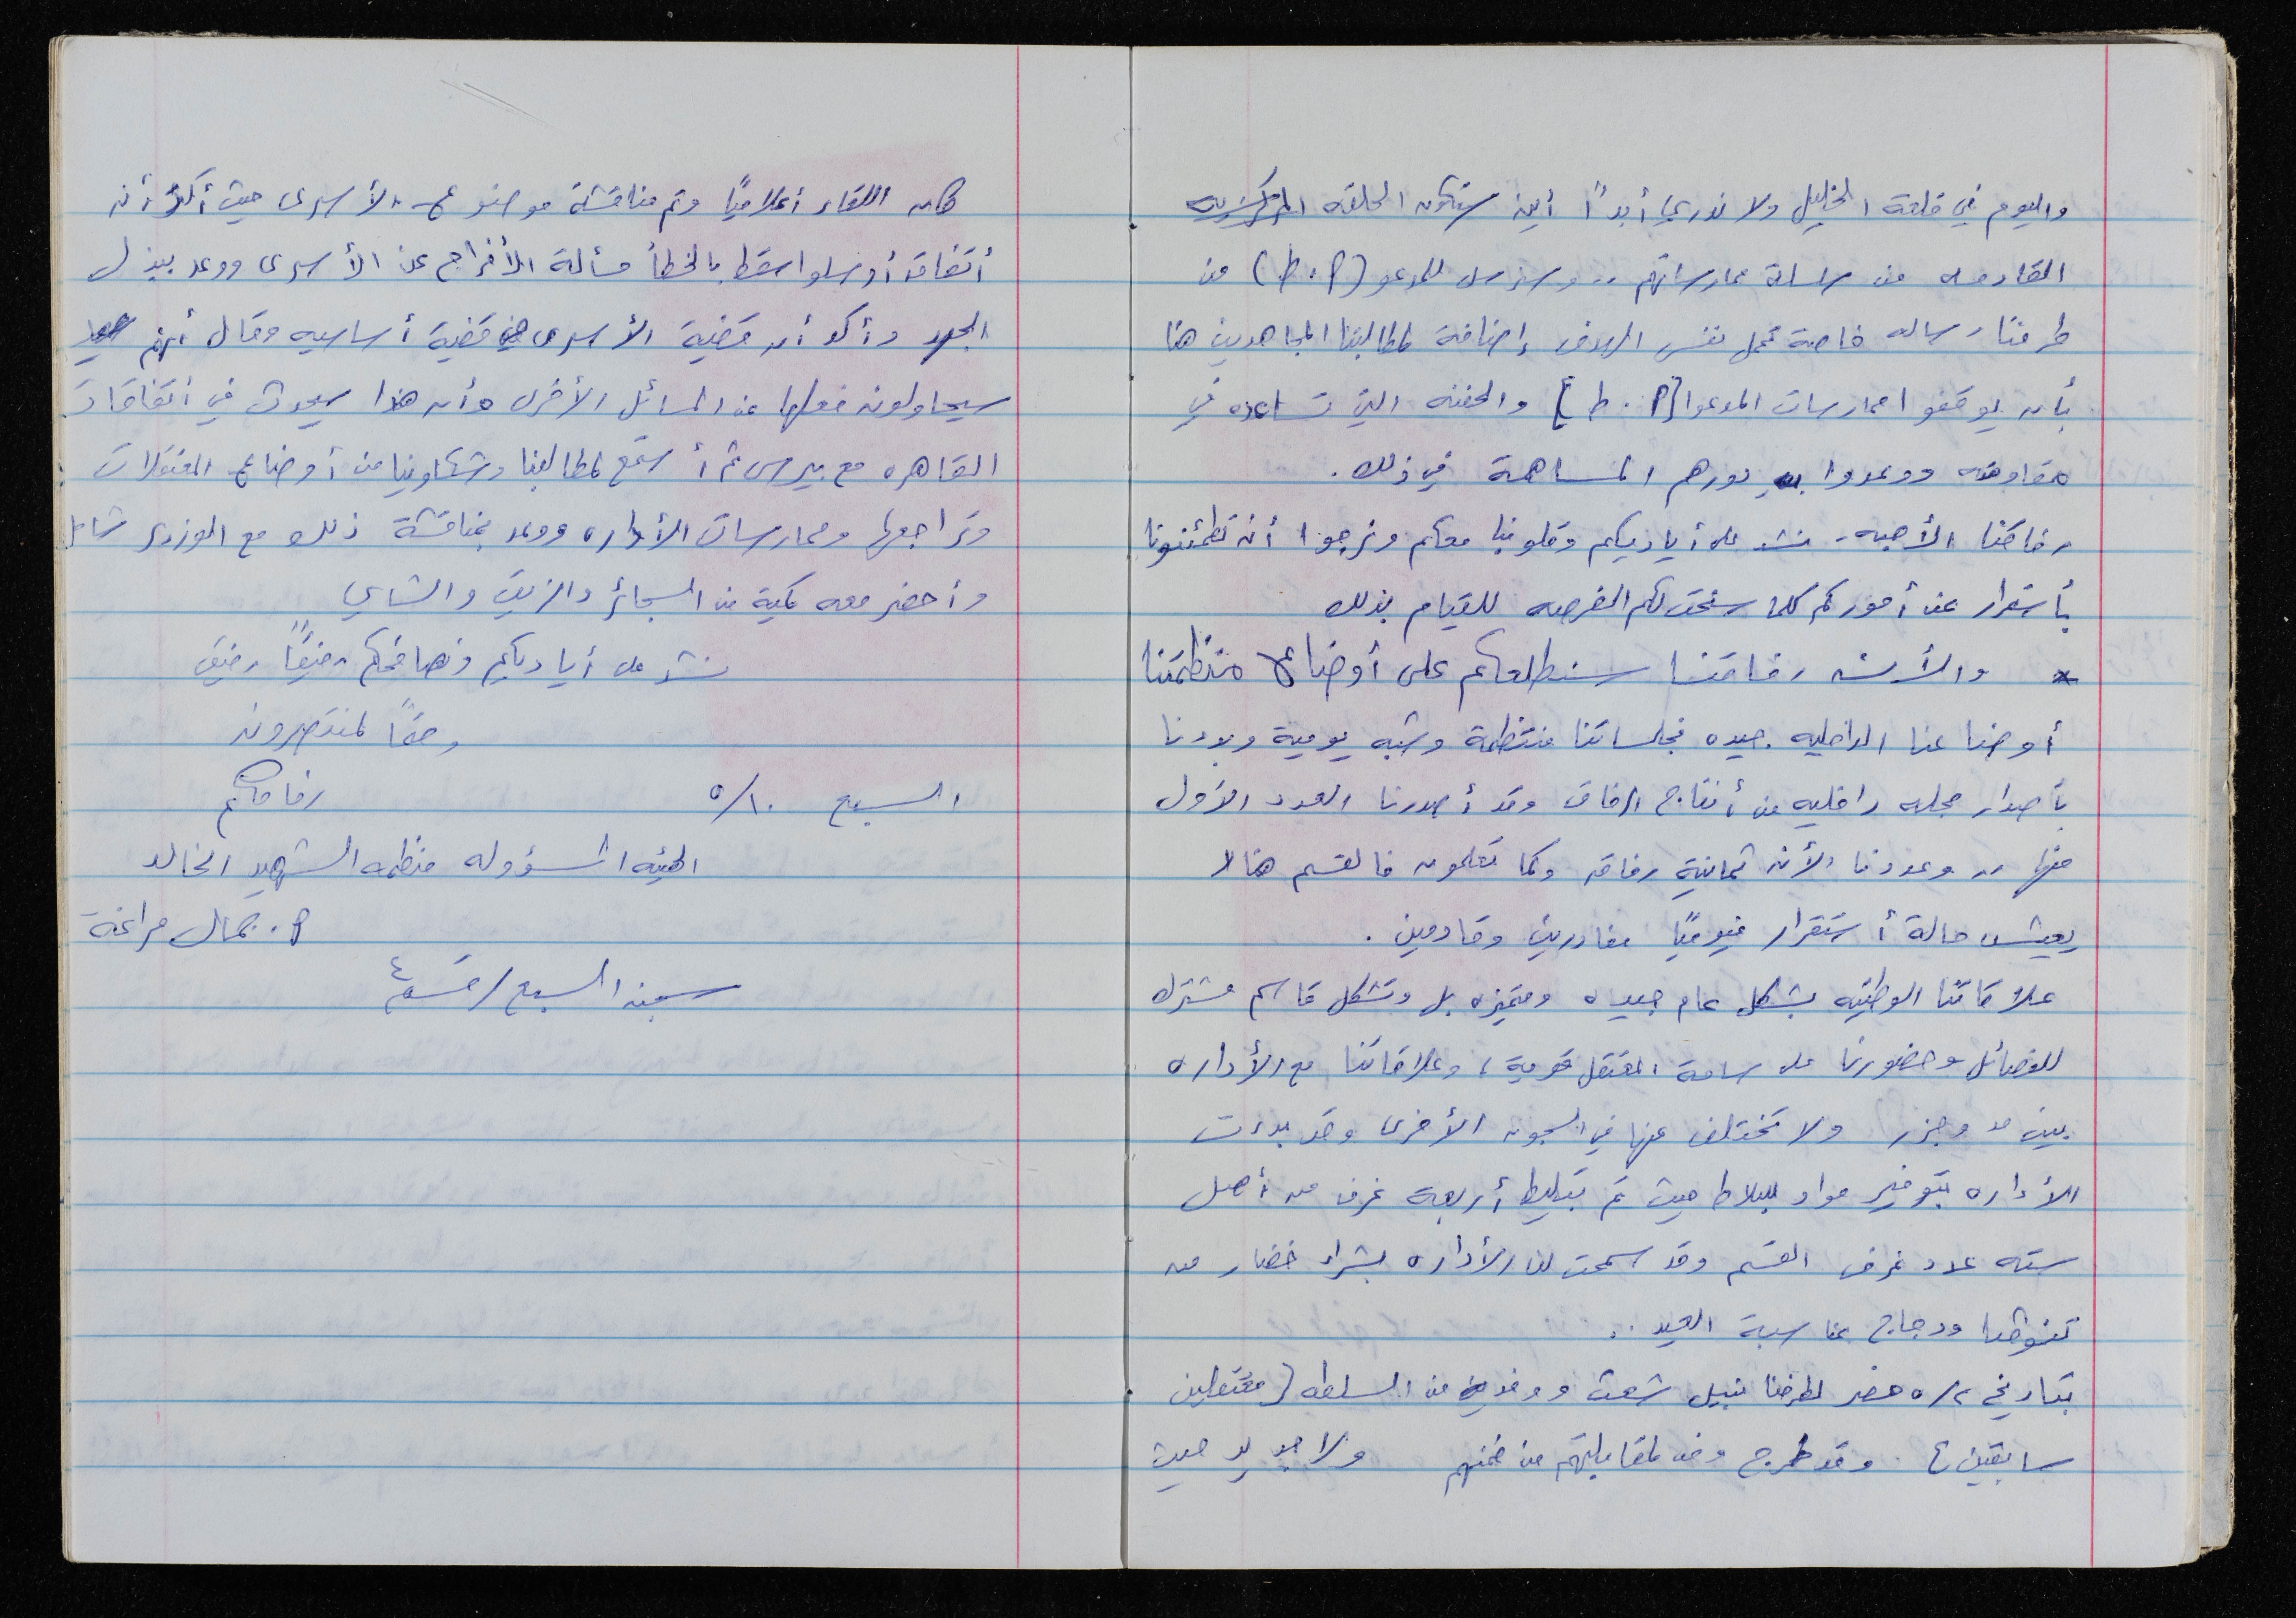 واليوم في قلعة الخليل ولا ندري أبداً أين ستكون الحلقة المركزيه
القادمه من سلسلة ممارساتهم .. وسنرسل للمدعو (م. ط) من
طرفنا رساله خاصة تحمل نفس الهدف إضافة لمطالبتنا المجاهدين هنا
بأن يوقفوا ممارسات المدعوا [م. ط] والحفنه التي تساعده في
مقاومته ووعدوا بدورهم المساهمة في ذلك .
رفاقنا الأحبه - نشد على أياديكم وقلوبنا معكم ونرجوا أن تطمئنونا
بأستمرار عن أموركم كلما سنحت لكم الفرصه للقيام بذلك
* والأن رفاقنا سنطلعكم على أوضاع منظمتنا
أوضاعنا الداخليه جيده فجلساتنا منتظمة وشبه يومية وبدءنا
بأصدار مجله داخليه من أنتاج الرفاق وقد أصدرنا العدد الأول
منها .. وعددنا الأن ثمانية رفاق وكما تعلمون فالقسم هنا لا
يعيش حالة أستقرار فيومياً مغادرين وقادمين .
علاقاتنا الوطنيه بشكل عام جيده ومتميزه بل وتشكل قاسم مشترك
للفصائل وحضورنا على ساحة المعتقل قوية ، وعلاقاتنا مع الأداره
بين مد وجزر ولا تختلف عنها في السجون الأخرى وقد بدءت
الأداره بتوفير مواد للبلاط حيث تم تبليط أربعة غرف من أصل
سته عدد غرف القسم وقد سمحت لنا الأداره بشراء خضار من
نقوطنا ودجاج بمناسبة العيد ..
بتاريخ ٥/٢ حضر لطرفنا نبيل شعث ووفدين من السلطه (معتقلين
سابقين) وقد خرج وفد لمقابلتهم من ضمنهم ولا جديد حيث
كان اللقاء أعلامياً وتم مناقشة موضوع الأسرى حيث أكد أن
أتفاق أوسلو اسقط بالخطأ مسألة الأفراج عن الأسرى ووعد ببذل
الجهد وأكد أن قضية الأسرى هي قضية أساسيه وقال أنهم
سيحاولون فصلها عن المسائل الأخرى وأن هذا سيحدث في أتفاقات
القاهره مع بيرس ثم أستمع لمطالبنا وشكاوينا من أوضاع المعتقلات
وتراجعها وممارسات الأداره ووعد بمناقشة ذلك مع الوزير شاحل
وأحضر معه كمية من السجائر والزيت والشاي
نشد على أياديكم ونصافحكم رفيقاً رفيق
وحقاً لمنتصرون
السبع ٥/١٠ رفاقكم
الهيئه المسؤوله منظمه الشهيد الخالد
م. جمال مراغة
سجن السبع / قسم ٤